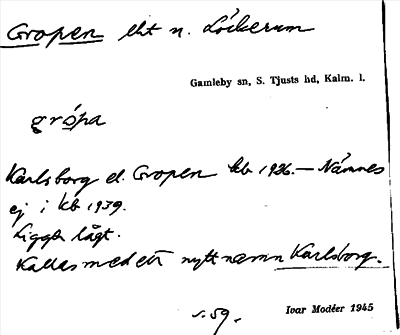 Gropen lht n. Löckerum
Gamleby sn, S. Tjusts hd, Kalm. l.
grópa
Karlsborg el. Gropen kb 1926. — Nämnes
ej i kb 1939.
Ligger lågt.
Kallas med ett nytt namn Karlsborg.
s. 59.
Ivar Modéer 1945